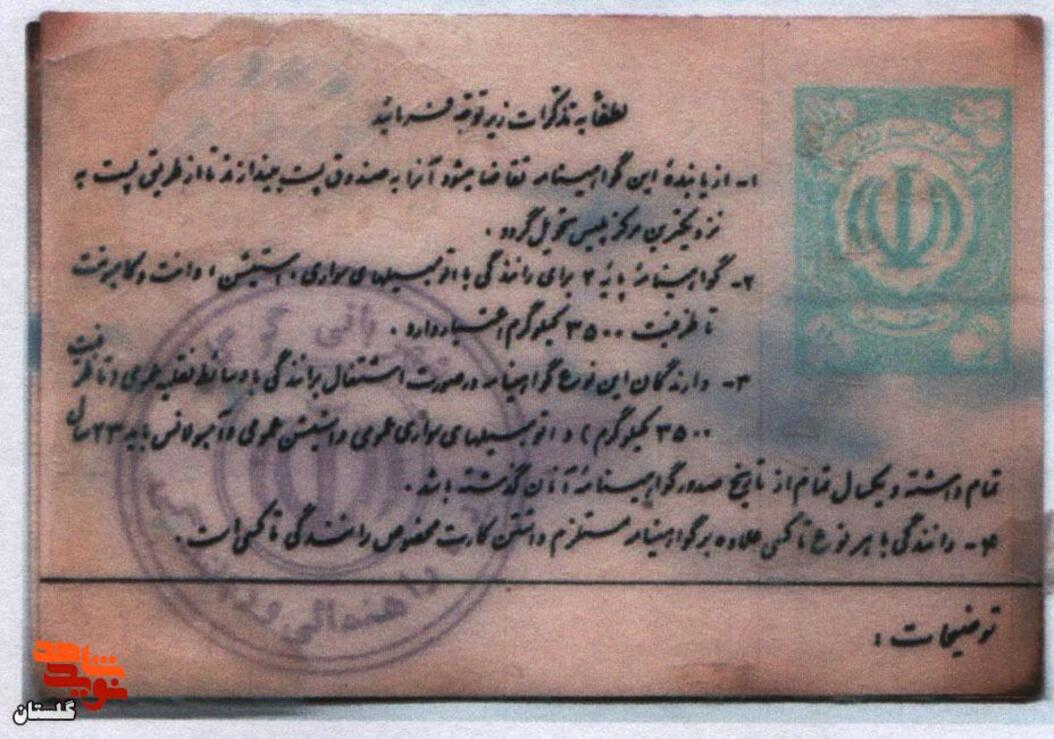 لطفاً به تذکرات زیر توجه فرمائید
۱- از یابندهٔ این گواهینامه تقاضا میشود آنرا به صندوق پست بیندازند تا از طریق پست به
نزدیکترین مرکز پلیس تحویل گردد .
۲- گواهینامهٔ پایهٔ ۲ برای رانندگی با اتومبیلهای سواری ، استیشن ، وانت و کامیونت
تا ظرفیت ۳۵۰۰ کیلوگرم اعتبار دارد .
۳- دارندگان این نوع گواهینامه در صورت اشتغال برانندگی با وسائط نقلیه عمومی (تا ظرفیت
۳۵۰۰ کیلوگرم) و اتومبیلهای سواری عمومی و استیشن عمومی و آمبولانس باید ۲۳ سال
تمام داشته و یکسال تمام از تاریخ صدور گواهینامهٔ آنان گذشته باشد .
۴- رانندگی با هر نوع تاکسی علاوه بر گواهینامه مستلزم داشتن کارت مخصوص رانندگی تاکسی است .
توضیحات :
راهنمائی و
نوید شاهد
گلستان